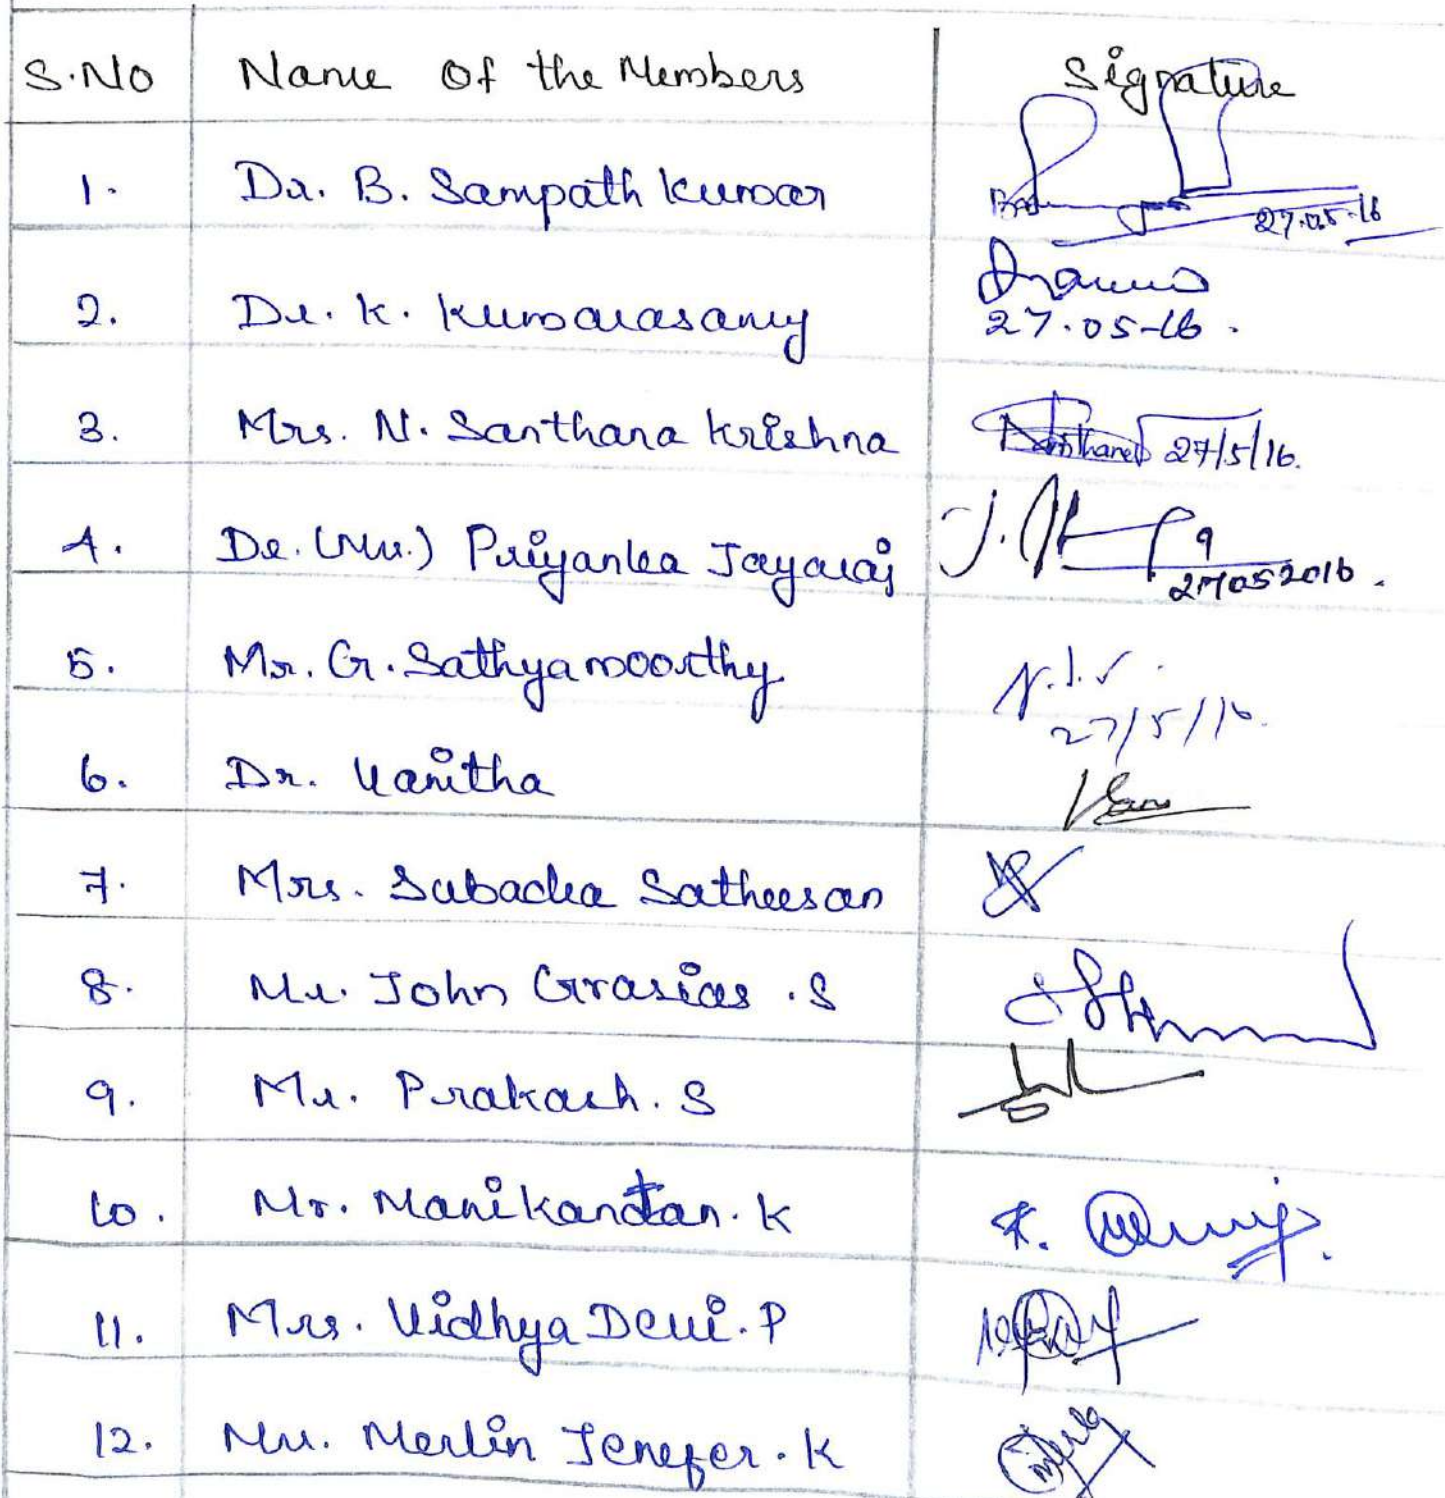 S.No Name Of the Members Signature
1. Dr. B. Sampath Kumar 27.05.16
2. Dr. K. Kumarasamy 27.05-16.
3. Mrs. N. Santhana Krishna 27/5/16.
4. Dr. (Mrs.) Priyanka Jayaraj 27052016.
5. Mr. G. Sathyamoorthy 27/5/16.
6. Dr. Vanitha
7. Mrs. Satheesan
8. Mr. John Grasias .S
9. Mr. Prakash. S
10. Mr. Manikandan. K K.
11. Mrs. Vidhya Devi. P
12. Merlin Jenefer. K